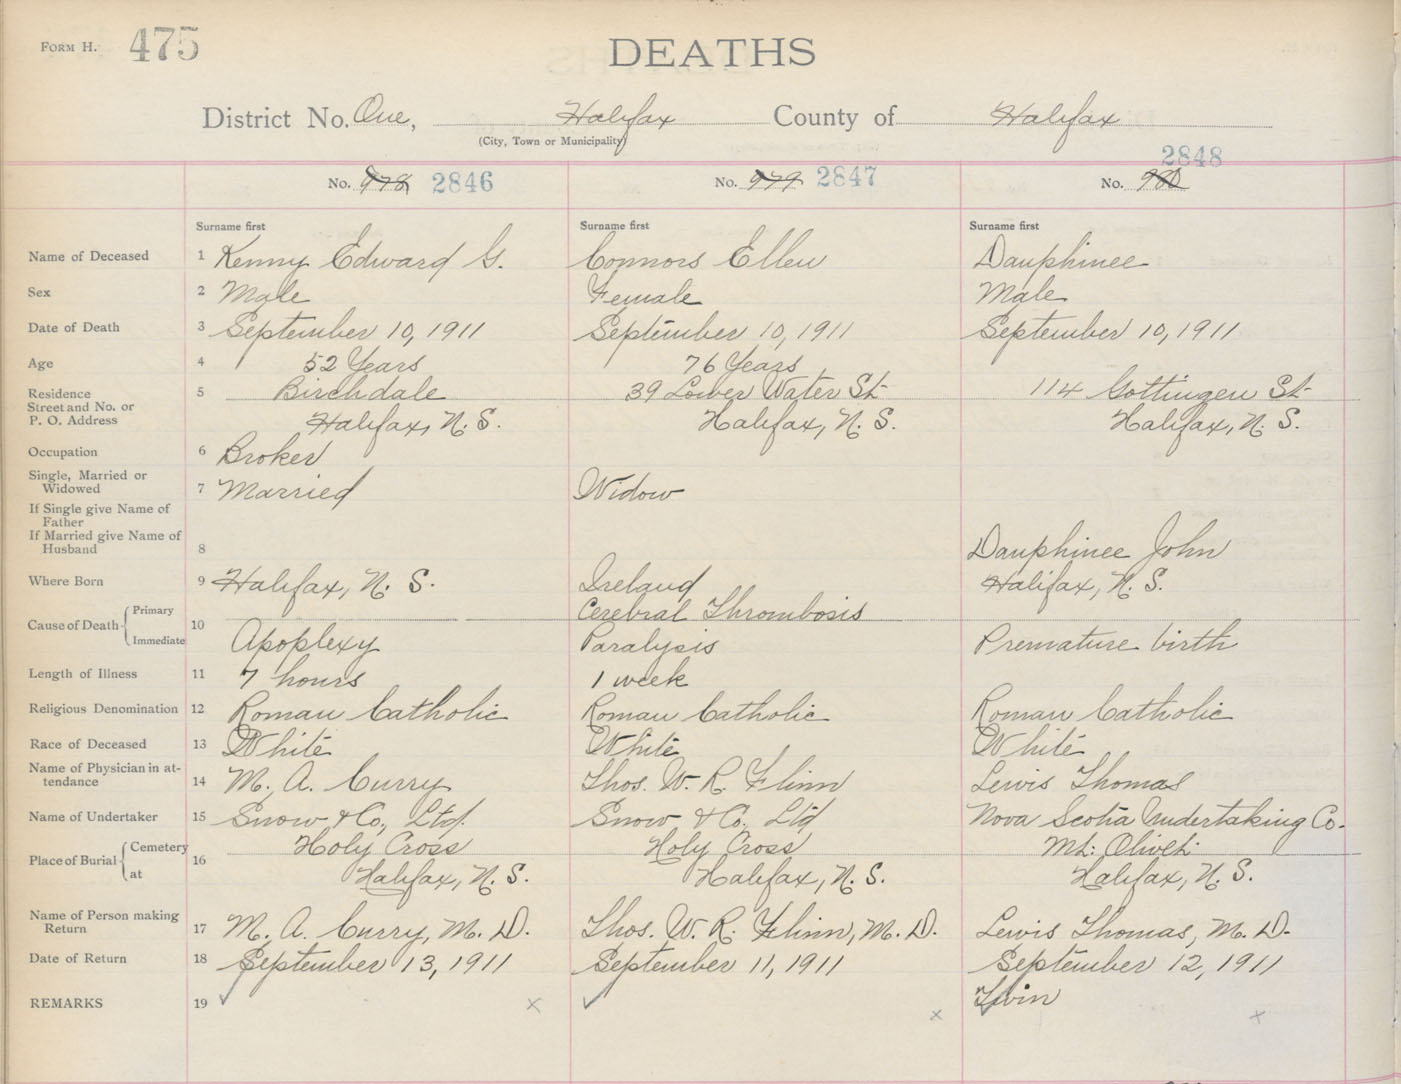 FORM H. 475
DEATHS
District No. One, Halifax County of Halifax
(City, Town or Municipality)
No. 978 2846 No. 979 2847 No. 980 2848
Surname first Surname first Surname first
Name of Deceased 1 Kenny Edward G. Connors Ellen Dauphinee
Sex 2 Male Female Male
Date of Death 3 September 10, 1911 September 10, 1911 September 10, 1911
Age 4 52 Years 76 Years
Residence 5 Birchdale 39 Lower Water St. 114 Gottingen St.
Street and No. or
P. O. Address Halifax, N. S. Halifax, N. S. Halifax, N. S.
Occupation 6 Broker
Single, Married or
Widowed 7 Married Widow
If Single give Name of
Father
If Married give Name of
Husband 8 Dauphinee John
Where Born 9 Halifax, N. S. Ireland Halifax, N. S.
Cause of Death 10 Primary Cerebral Thrombosis
Immediate Apoplexy Paralysis Premature birth
Length of Illness 11 7 hours 1 week
Religious Denomination 12 Roman Catholic Roman Catholic Roman Catholic
Race of Deceased 13 White White White
Name of Physician in at-
tendance 14 M. A. Curry Thos. W. R. Flinn Lewis Thomas
Name of Undertaker 15 Snow & Co., Ltd. Snow & Co. Ltd Nova Scotia Undertaking Co.
Place of Burial 16 Cemetery Holy Cross Holy Cross Mt. Olivet
at Halifax, N. S. Halifax, N. S. Halifax, N. S.
Name of Person making
Return 17 M. A. Curry, M. D. Thos. W. R. Flinn, M. D. Lewis Thomas, M. D.
Date of Return 18 September 13, 1911 September 11, 1911 September 12, 1911
REMARKS 19 Twin